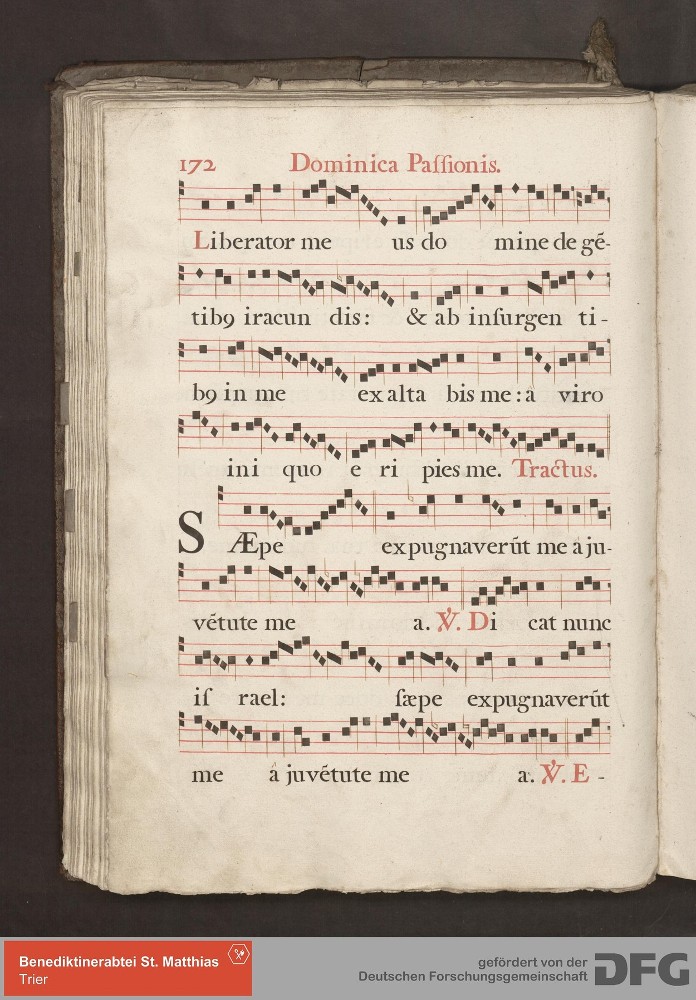 172 Dominica Paſſionis.
Liberator me us do mine de gē-
tib9 iracun dis: & ab inſurgen ti-
b9 in me exalta bis me: a viro
ini quo e ri pies me. Tractus.
SÆpe expugnaverūt me a ju-
vētute me a. ℣. Di cat nunc
iſ rael: ſæpe expugnaverūt
me â juvētute me a. ℣. E-
Benediktinerabtei St. Matthias
Trier
gefördert von der
Deutschen Forschungsgemeinschaft DFG